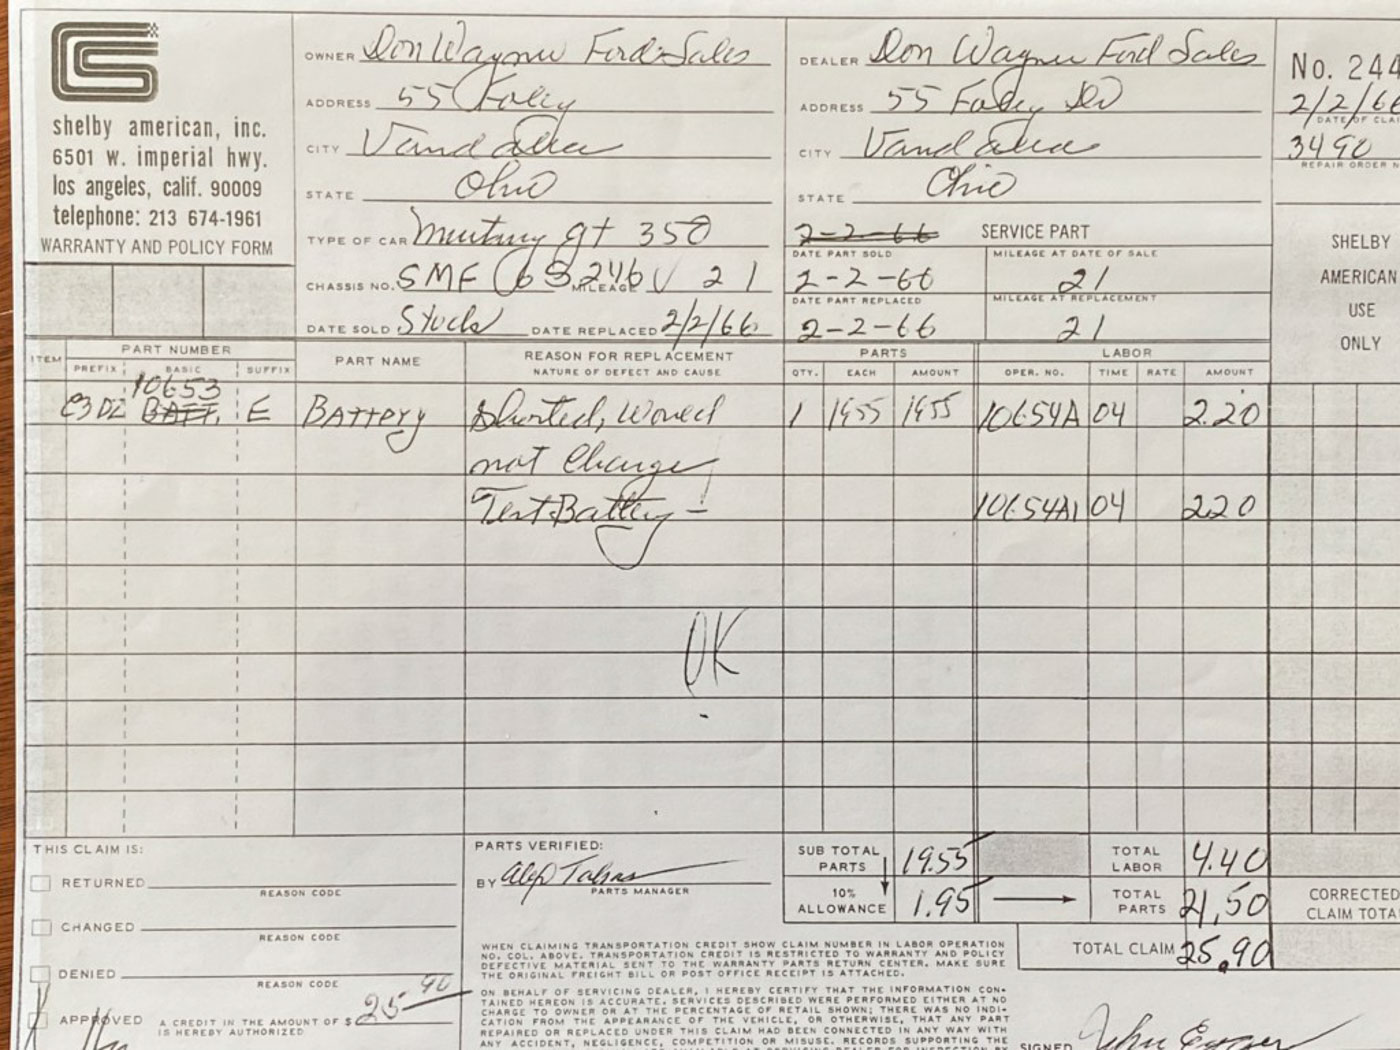 shelby american, inc.
6501 w. imperial hwy.
los angeles, calif. 90009
telephone: 213 674-1961
WARRANTY AND POLICY FORM
OWNER Don Wagner Ford Sales
ADDRESS 55 Foley
CITY Vandalia
STATE Ohio
TYPE OF CAR Mustang gt 350
CHASSIS NO. SMF 6S246 MILEAGE 21
DATE SOLD Stock DATE REPLACED 2/2/66
DEALER Don Wagner Ford Sales
ADDRESS 55 Foley Dr
CITY Vandalia
STATE Ohio
2-2-66 SERVICE PART
DATE PART SOLD MILEAGE AT DATE OF SALE
2-2-66 21
DATE PART REPLACED MILEAGE AT REPLACEMENT
2-2-66 21
No. 244
2/2/66
DATE OF CLAI
3490
REPAIR ORDER N
SHELBY
AMERICAN
USE
ONLY
ITEM PART NUMBER PART NAME REASON FOR REPLACEMENT PARTS LABOR
PREFIX BASIC SUFFIX NATURE OF DEFECT AND CAUSE QTY. EACH AMOUNT OPER. NO. TIME RATE AMOUNT
10653
C3DZ BATT. E BATTery Shorted, Would 1 1955 1955 10654A 04 2.20
not Charge
Test Battery - 10654A1 04 2.20
OK
THIS CLAIM IS:
RETURNED
REASON CODE
CHANGED
REASON CODE
DENIED
REASON CODE
APPROVED A CREDIT IN THE AMOUNT OF $ 25 90
IS HEREBY AUTHORIZED
PARTS VERIFIED:
BY
PARTS MANAGER
SUB TOTAL PARTS 19.55 TOTAL LABOR 4.40
10% ALLOWANCE 1.95 TOTAL PARTS 21,50
CORRECTED
CLAIM TOTA
TOTAL CLAIM 25.90
WHEN CLAIMING TRANSPORTATION CREDIT SHOW CLAIM NUMBER IN LABOR OPERATION
NO. COL. ABOVE. TRANSPORTATION CREDIT IS RESTRICTED TO WARRANTY AND POLICY
DEFECTIVE MATERIAL SENT TO THE WARRANTY PARTS RETURN CENTER. MAKE SURE
THE ORIGINAL FREIGHT BILL OR POST OFFICE RECEIPT IS ATTACHED.
ON BEHALF OF SERVICING DEALER, I HEREBY CERTIFY THAT THE INFORMATION CON-
TAINED HEREON IS ACCURATE. SERVICES DESCRIBED WERE PERFORMED EITHER AT NO
CHARGE TO OWNER OR AT THE PERCENTAGE OF RETAIL SHOWN; THERE WAS NO INDI-
CATION FROM THE APPEARANCE OF THE VEHICLE, OR OTHERWISE, THAT ANY PART
REPAIRED OR REPLACED UNDER THIS CLAIM HAD BEEN CONNECTED IN ANY WAY WITH
ANY ACCIDENT, NEGLIGENCE, COMPETITION OR MISUSE. RECORDS SUPPORTING THE
SIGNED John